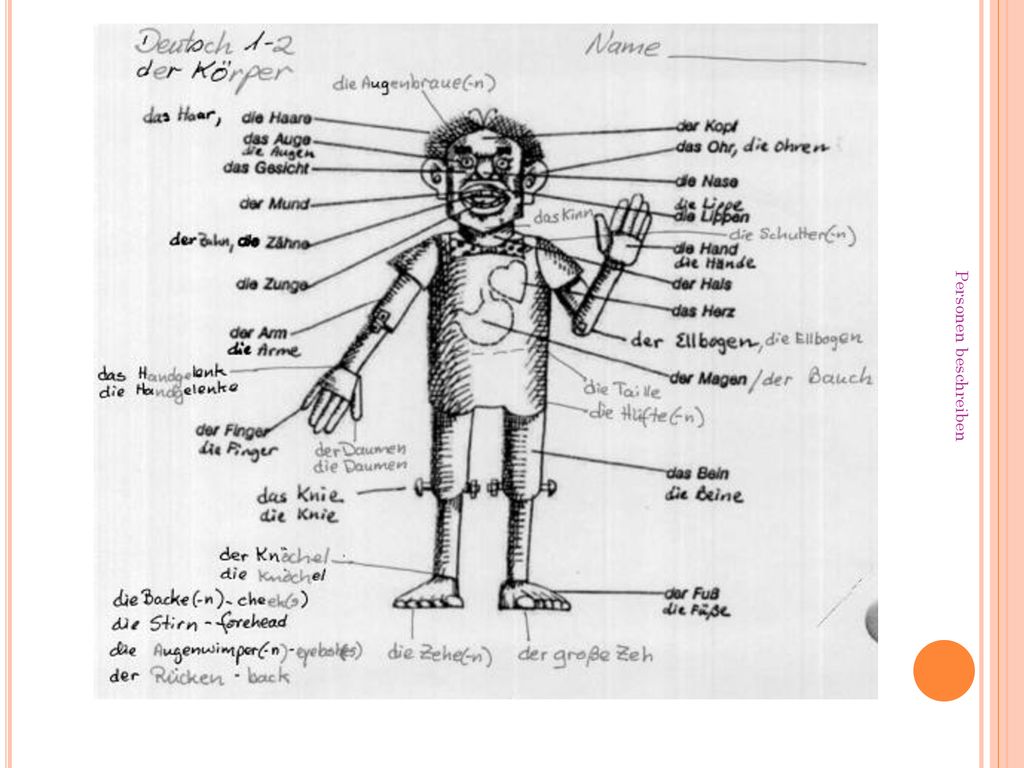 Deutsch 1-2
Name
der Körper
die Augenbraue(-n)
das Haar, die Haare
das Auge
die Augen
das Gesicht
der Mund
der Zahn, die Zähne
die Zunge
der Arm
die Arme
das Handgelenk
die Handgelenke
der Finger
die Finger
der Daumen
die Daumen
das Knie
die Knie
der Knöchel
die Knöchel
die Backe(-n) - cheek(s)
die Stirn - forehead
die Augenwimper(-n) -
der Rücken - back
der Kopf
das Ohr, die Ohren
die Nase
die Lippe
die Lippen
das Kinn
die Schulter(-n)
die Hand
die Hände
der Hals
das Herz
der Ellbogen, die Ellbogen
der Magen / der Bauch
die Taille
die Hüfte(-n)
das Bein
die Beine
der Fuß
die Füße
die Zehe(-n)
der große Zeh
Personen beschreiben